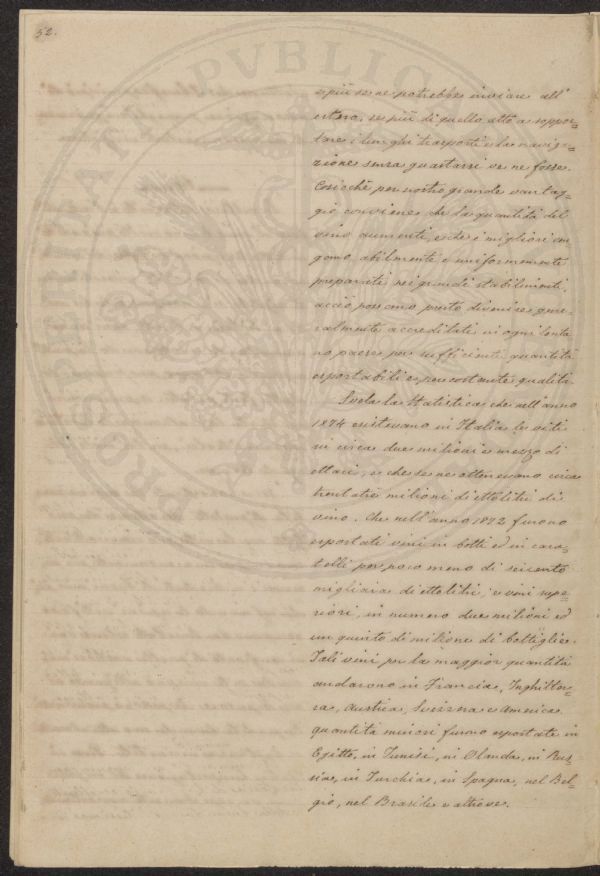 52.
e più se ne potrebbe inviare all'
estero, se più di quello atto a soppor=
tare i lunghi trasporti e la naviga=
zione senza guastarsi ve ne fosse.
Cosicchè per nostro grande vantag=
gio conviene che la quantità del
vino aumenti, e che i migliori ven
gono, abilmente e uniformemente
preparati nei grandi stabilimenti,
acciò possano presto divenire gene=
ralmente accreditati in ogni lonta
no paese per sufficiente quantità
esportabili e per costante qualità.
Svela la Statistica che nell'anno
1874 esistevano in Italia le viti
in circa due milioni e mezzo di
ettari, e che se ne ottenevano circa
trentatrè milioni di ettolitri di
vino. Che nell'anno 1872 furono
esportati vini in botti ed in cara=
telli per poco meno di seicento
migliaia di ettolitri, e vini supe=
riori, in numero due milioni ed
un quinto di milione di bottiglie.
Tali vini per la maggior quantità
andarono in Francia, Inghilter=
ra, Austria, Svizzera e America
quantità minori furono esportate in
Egitto, in Tunisi, in Olanda, in Rus=
sia, in Turchia, in Spagna, nel Bel=
gio, nel Brasile e altrove.